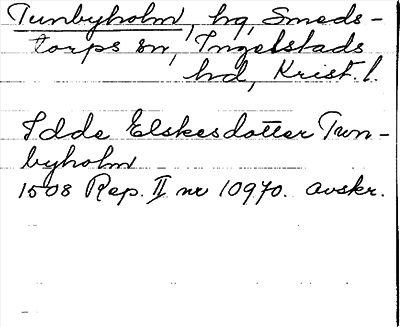 Tunbyholm, hg, Smeds-
torps sn, Ingelstads
hd, Krist. l.
Idde Elskesdotter Tun-
byholm
1508 Rep. II nr 10970. avskr.